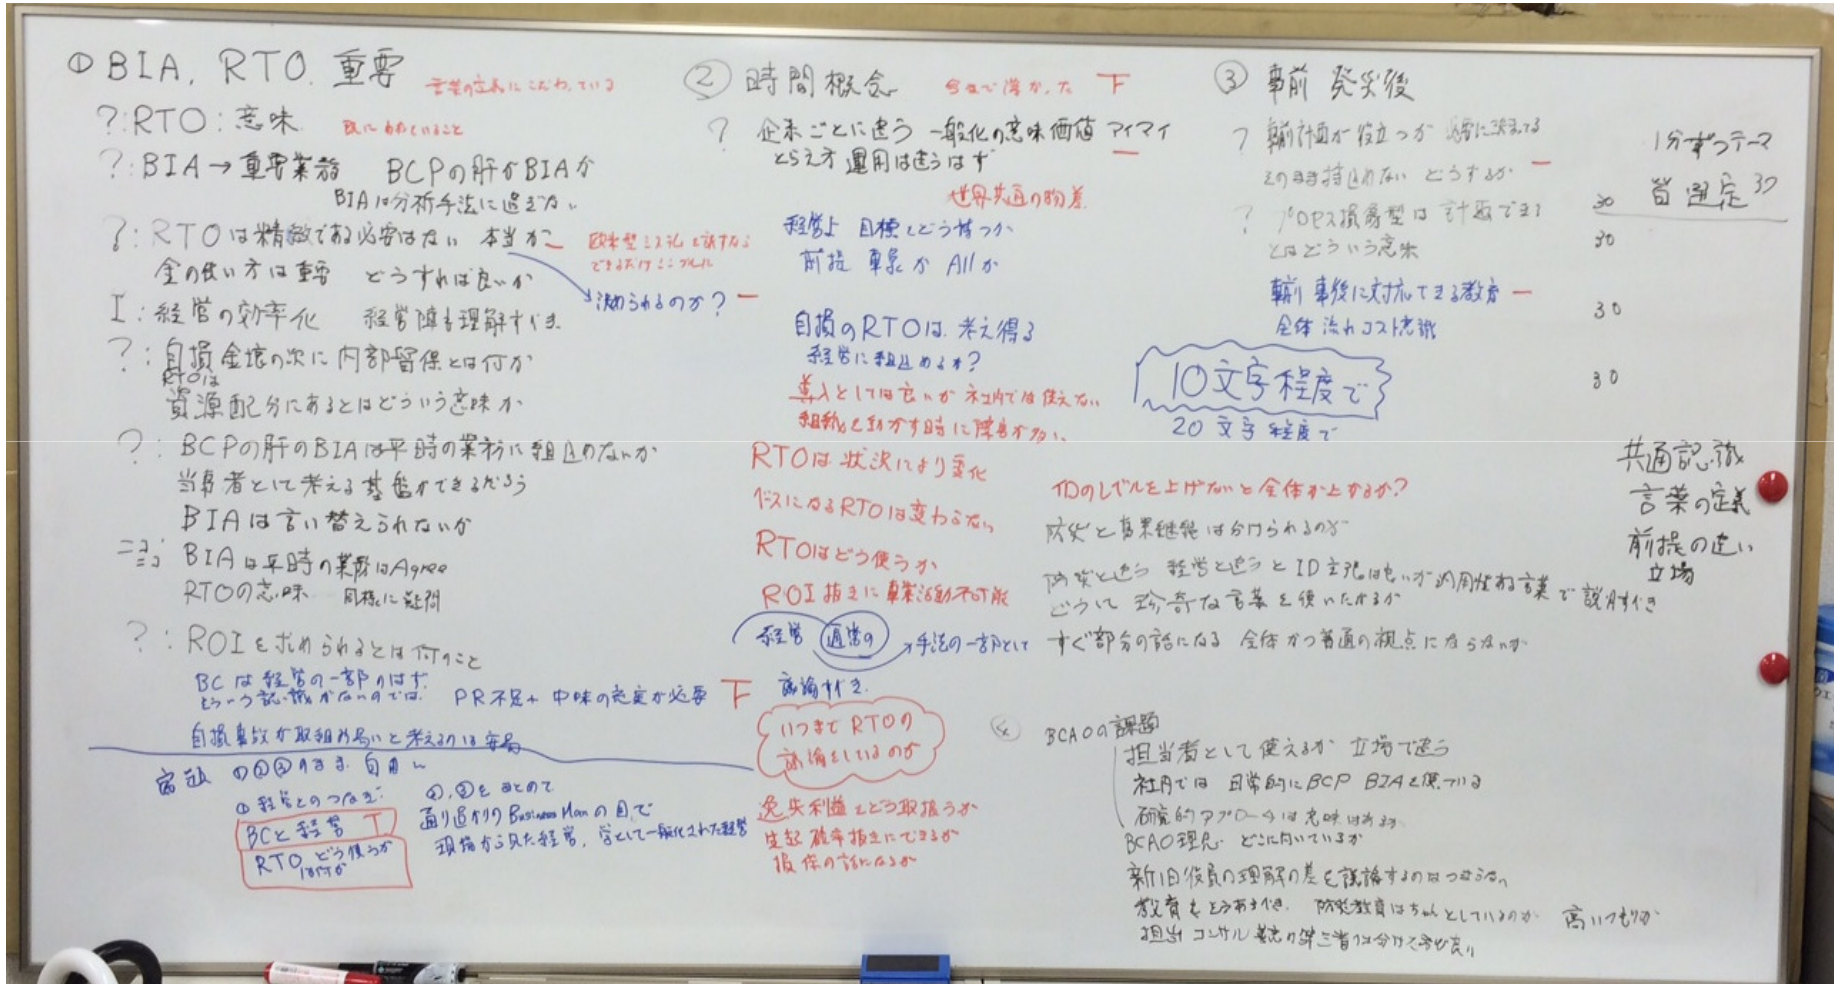 ① BIA, RTO 重要
言葉の定義にこだわっている
?:RTO:意味
既にわかっていること
?:BIA→重要業務 BCPの肝がBIAか
BIAは分析手法に過ぎない
?:RTOは精緻である必要はない 本当か
金の使い方は重要 どうすれば良いか
決められるのか?
I:経営の効率化 経営陣も理解すべき
?:自損金壊の次に内部留保とは何か
RTOは
資源配分にあるとはどういう意味か
?:BCPの肝のBIAは平時の業務に組込めないか
当事者として考える基盤ができるだろう
BIAは言い替えられないか
BIAは平時の業務はAgree
RTOの意味 同様に疑問
?:ROIを求められるとは何のこと
BCは経営の一部のはず
という認識がないのでは PR不足+中味の充実が必要 T
自損事故が取組み易いと考えるのは安易
宿題 の①②③のまま 自由に
①経営とのつなぎ
BCと経営 T
RTO どう使うか
は何か
①,②をまとめて
通り道かりのBusiness Manの目で
現場から見た経営、学として一般化された経営
② 時間概念
今まで浮かった T
? 企業ごとに違う 一般化の意味価値 アイマイ
とらえ方 運用は違うはず
世界共通の物差
経営上 目標をどう持つか
前提 事象か Allか
自損のRTOは、考え得る
経営に組込めるか?
導入としては良いが社内では使えない
組織を動かす時に障害が多い
RTOは状況により変化
ベースになるRTOは変わらない
RTOはどう使うか
ROI抜きに事業活動不可能
経営 通常の →手法の一部として
議論すべき
いつまでRTOの
議論をしているのか
逸失利益をどう取扱うか
生起確率抜きにできるか
損保の話になるか
③ 事前 発災後
? 事前計画が役立つか 必要に決まってる
そのまま持込めない どうするか
? プロセス損傷型は計画できる
とはどういう意味
事前 事後に対応できる教育
全体 流れ コスト意識
10文字程度で
20文字程度で
IDのレベルを上げないと全体が上がるか?
防災と事業継続は分けられるのか
防災と違う 経営と違うとID主張は良いが 汎用性ある言葉で説明すべき
どうして珍奇な言葉を使いたがるか
すぐ部分の話になる 全体かつ普通の視点にならないか
④ BCAOの課題
担当者として使えるか 立場で違う
社内では 日常的にBCP BIAを使っている
研究的アプローチは意味はあるか
BCAO理念 どこに向いているか
新旧役員の理解の差を議論するのはつまらない
教育をどうあるべき 防災教育はちゃんとしているのか 高いつもりか
担当 コンサル 第三者は分けて方が良い
1分ずつテーマ
皆選定 30
30
30
30
30
共通認識
言葉の定義
前提の違い
立場